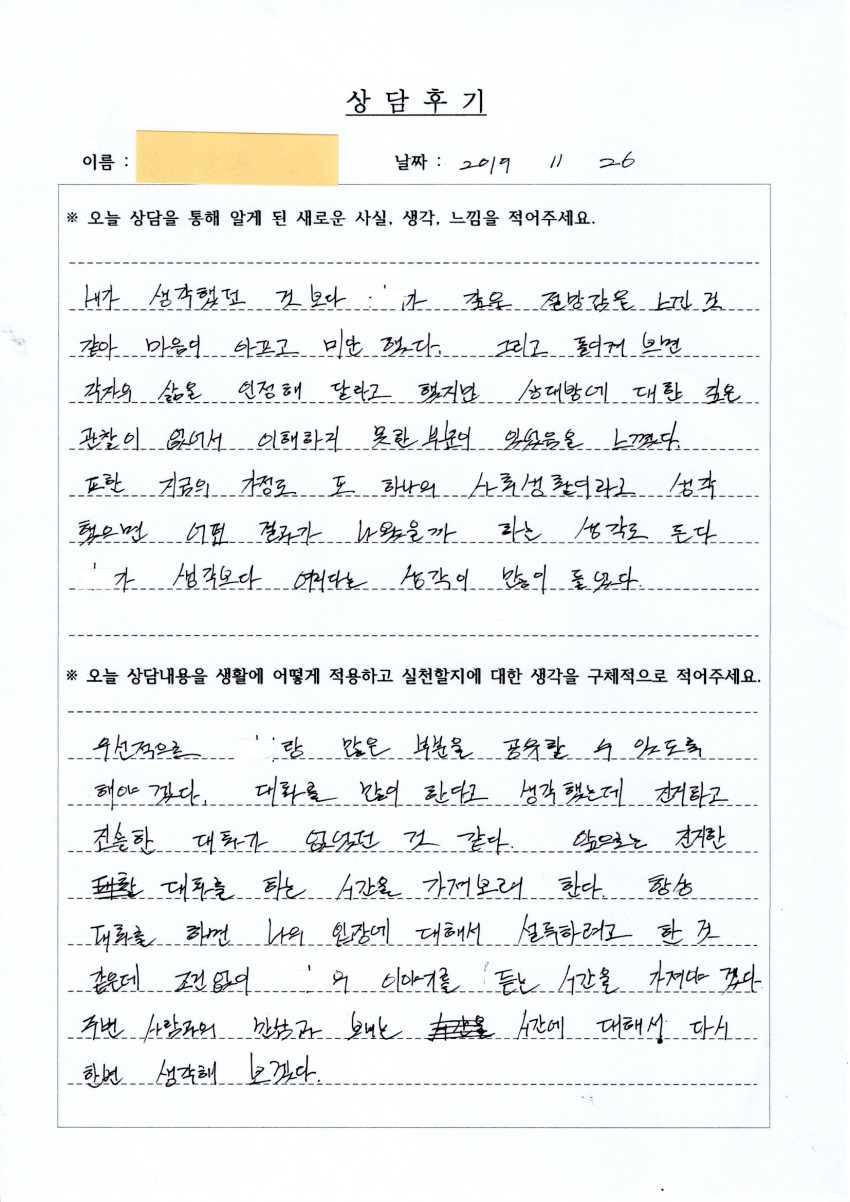 상 담 후 기
이름 : 날짜 : 2019 11 26
※ 오늘 상담을 통해 알게 된 새로운 사실, 생각, 느낌을 적어주세요.
내가 생각했던 것 보다 가 깊은 절망감을 느낀 것
같아 마음이 아프고 미안 했다. 그리고 돌이켜 보면
각자의 삶을 인정해 달라고 했지만 상대방에 대한 깊은
관찰이 없어서 이해하지 못한 부분이 있었음을 느꼈다.
또한 지금의 가정도 또 하나의 사회생활이라고 생각
했으면 어떤 결과가 나왔을까 하는 생각도 든다
가 생각보다 여리다는 생각이 많이 들었다.
※ 오늘 상담내용을 생활에 어떻게 적용하고 실천할지에 대한 생각을 구체적으로 적어주세요.
우선적으로 랑 많은 부분을 공유할 수 있도록
해야 겠다. 대화를 많이 한다고 생각했는데 진지하고
진솔한 대화가 없었던 것 같다. 앞으로는 진지한
대화를 하는 시간을 가져보려 한다. 항상
대화를 하면 나의 입장에 대해서 설득하려고 한 것
같은데 조건없이 의 이야기를 듣는 시간을 가져야 겠다
주변 사람과의 만남과 보내는 시간에 대해서 다시
한번 생각해 보겠다.